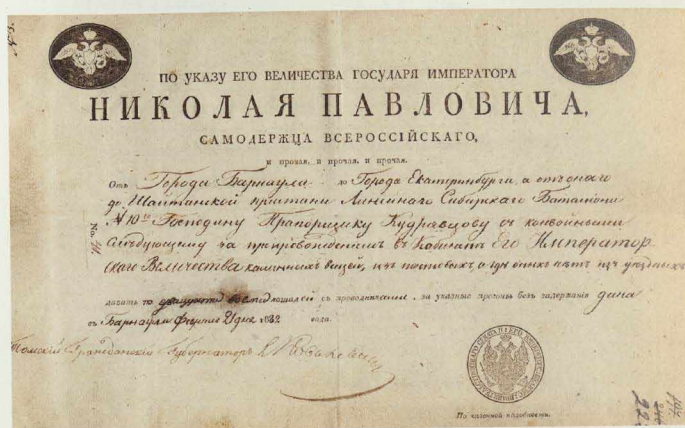 ПО УКАЗУ ЕГО ВЕЛИЧЕСТВА ГОСУДАРЯ ИМПЕРАТОРА
НИКОЛАЯ ПАВЛОВИЧА,
САМОДЕРЖЦА ВСЕРОССІЙСКАГО,
и прочая, и прочая, и прочая.
Отъ Города Барнаула до Города Екатеринбурга, а отъ онаго
до Шайтанской пристани Линейнаго Сибирскаго Баталіона
№ 10го Господину Прапорщику Кудрявцову съ конвойными
слѣдующему за препровожденіемъ въ Кабинетъ Его Император-
скаго Величества каменныхъ вещей, изъ почтовыхъ, а гдѣ оныхъ нѣтъ изъ уѣздныхъ
давать по лошадей съ проводниками, за указные прогоны безъ задержанія дана
въ Барнаулѣ Февраля 21 дня 183 года.
Томскій Гражданскій Губернаторъ
По казенной надобности.